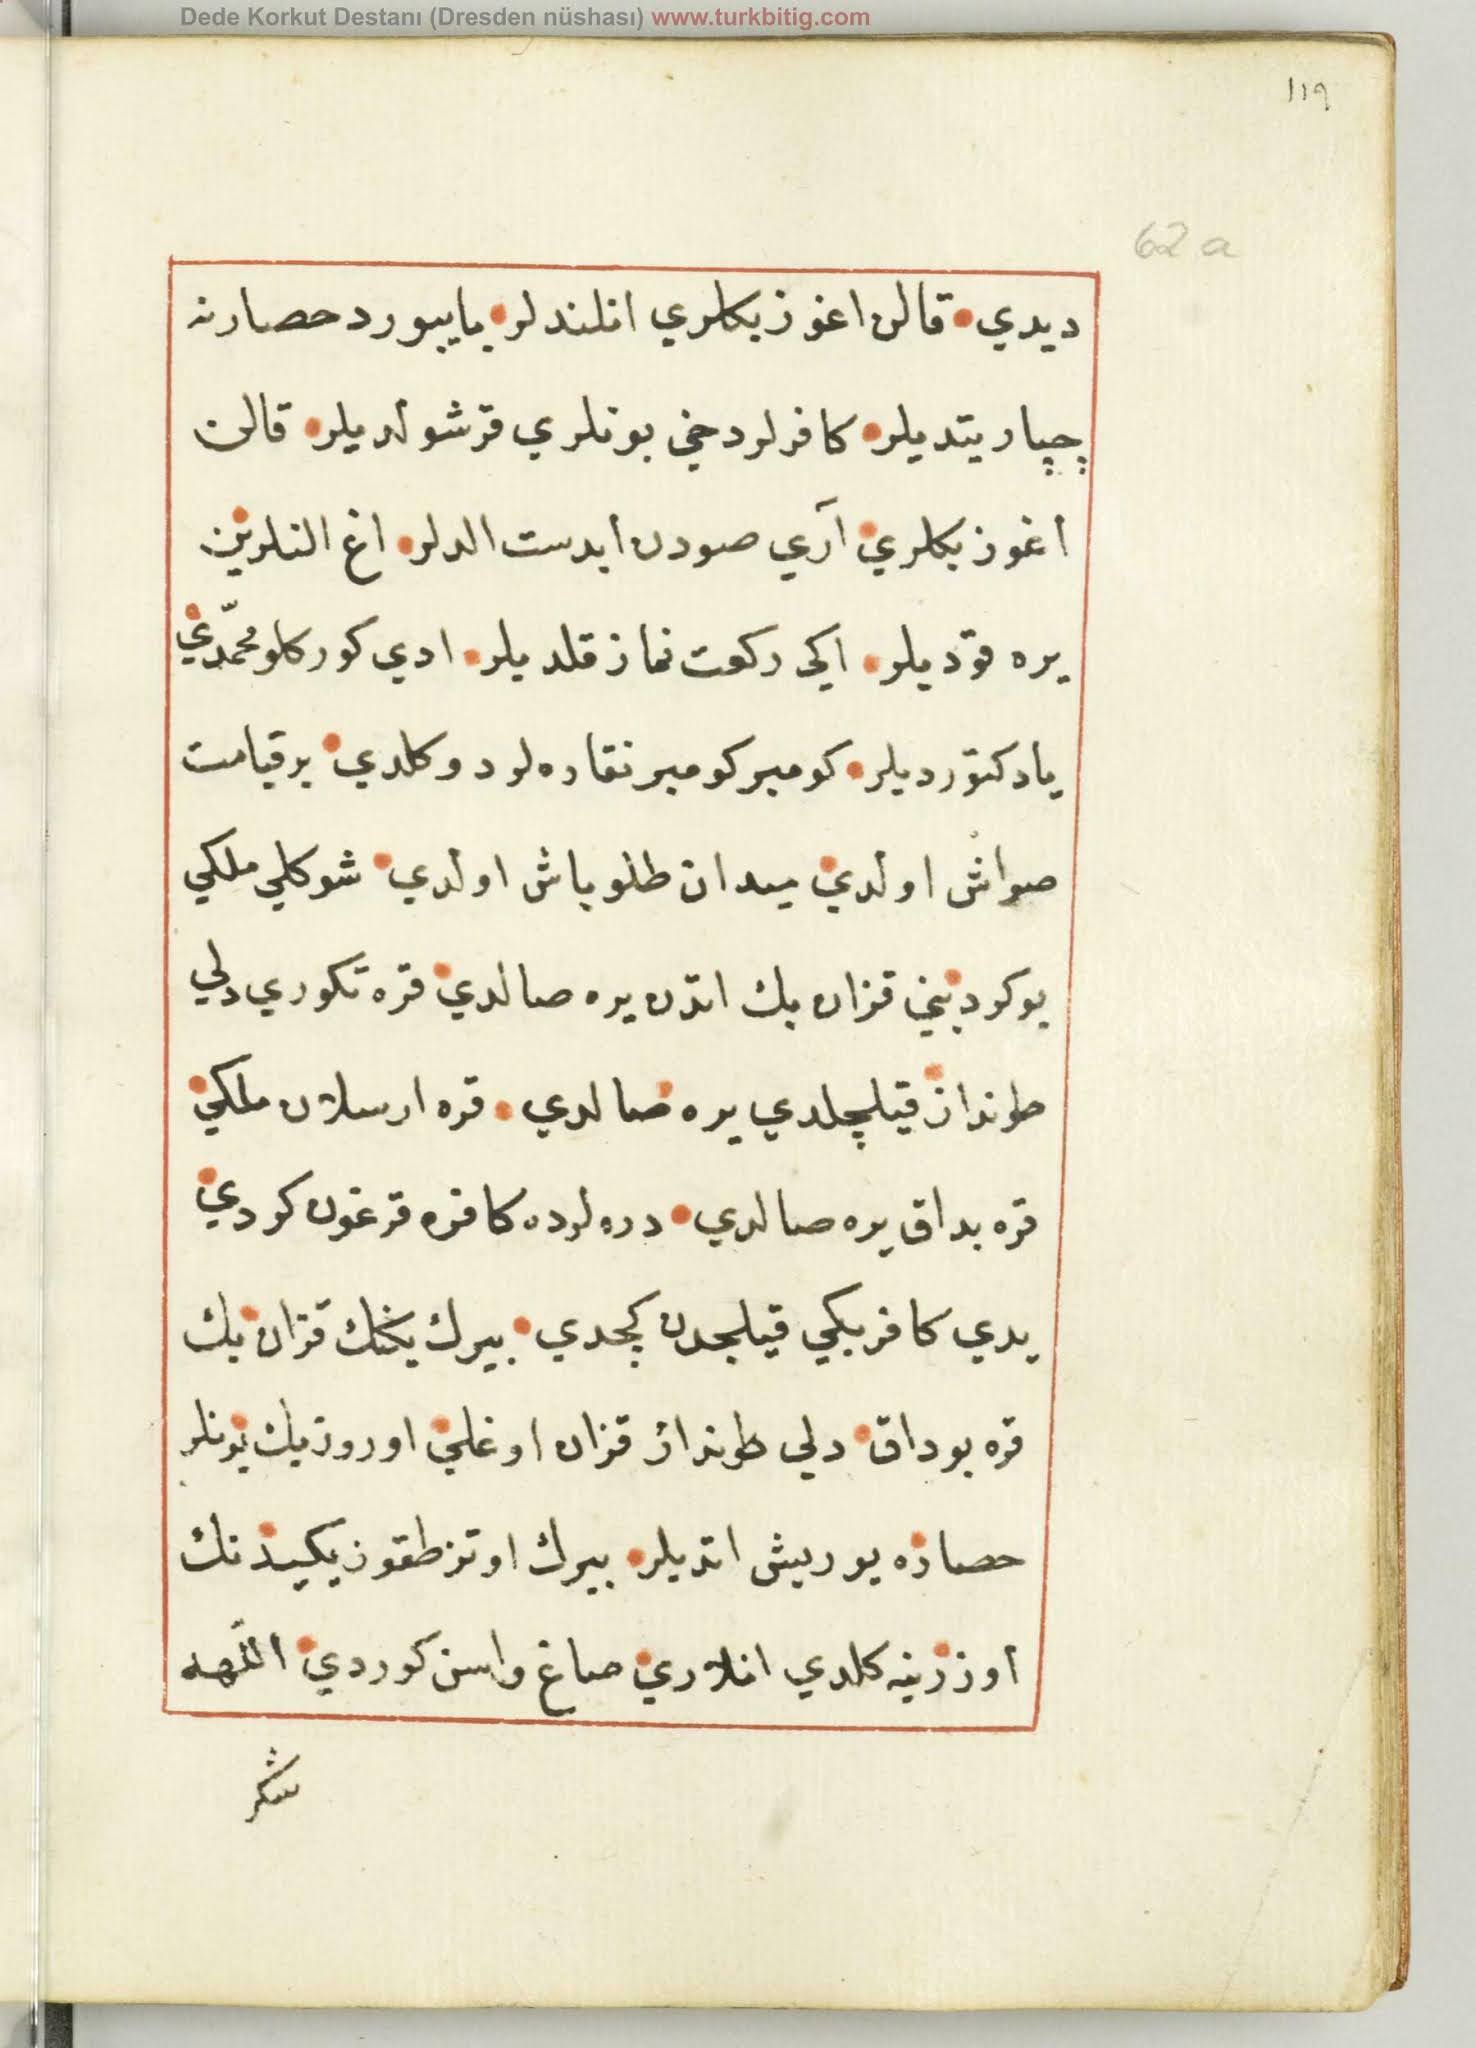 Dede Korkut Destanı (Dresden nüshası) www.turkbitig.com
١١٩
62 a
ديدي • قالن اغوز بكلري اتلندلر • بايبورد حصارنه
چپار يتديلر • كافرلر دخي بونلري قرشولديلر • قالن
اغوز بكلري آري صودن ابدست الدلر • اغ النلرين
يره قوديلر • ايكى ركعت نماز قلديلر • ادي كوركلو محمّدي
ياد كتورديلر • كومبر كومبر نقاره لر دوكلدي • بر قيامت
صواش اولدي ميدان طلو باش اولدي • شوكلي ملكي
بوكردبني قزان بك اتدن يره صالدي • قره تكوري دلي
طوندار قيلچلدي يره صالدي • قره ارسلان ملكي
قره بداق يره صالدي • دره لرده كافره قرغون كردي
يدي كافر بكي قيلجدن كچدي • بيرك يكنك قزان بك
قره بوداق • دلي طوندار قزان اوغلي اوروز بك بونلر
حصاره يوريش اتديلر • بيرك اوتز طقوز يكيدنك
اوزرينه كلدي انلاري صاغ واسن كوردي • اللّهه
شكر